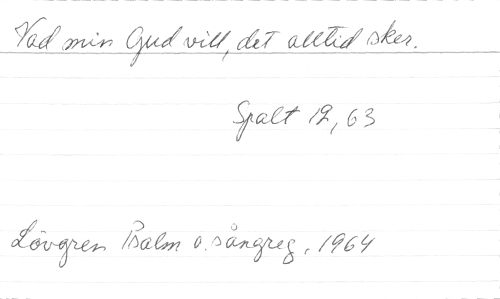 Vad min Gud vill, det alltid sker.
Spalt 12, 63
Lövgren Psalm o. sångreg, 1964